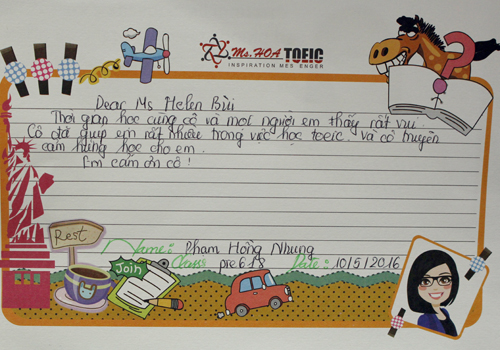 Ms. HOA TOEIC
INSPIRATION MES ENGER
Dear Ms Helen Bùi
Thời gian học cùng cô và mọi người em thấy rất vui.
Cô đã giúp em rất nhiều trong việc học toeic. Và cô truyền
cảm hứng học cho em.
Em cảm ơn cô!
Rest
Name: Phạm Hồng Nhung
Class: pre 618 Date: 10/5/2016
Join